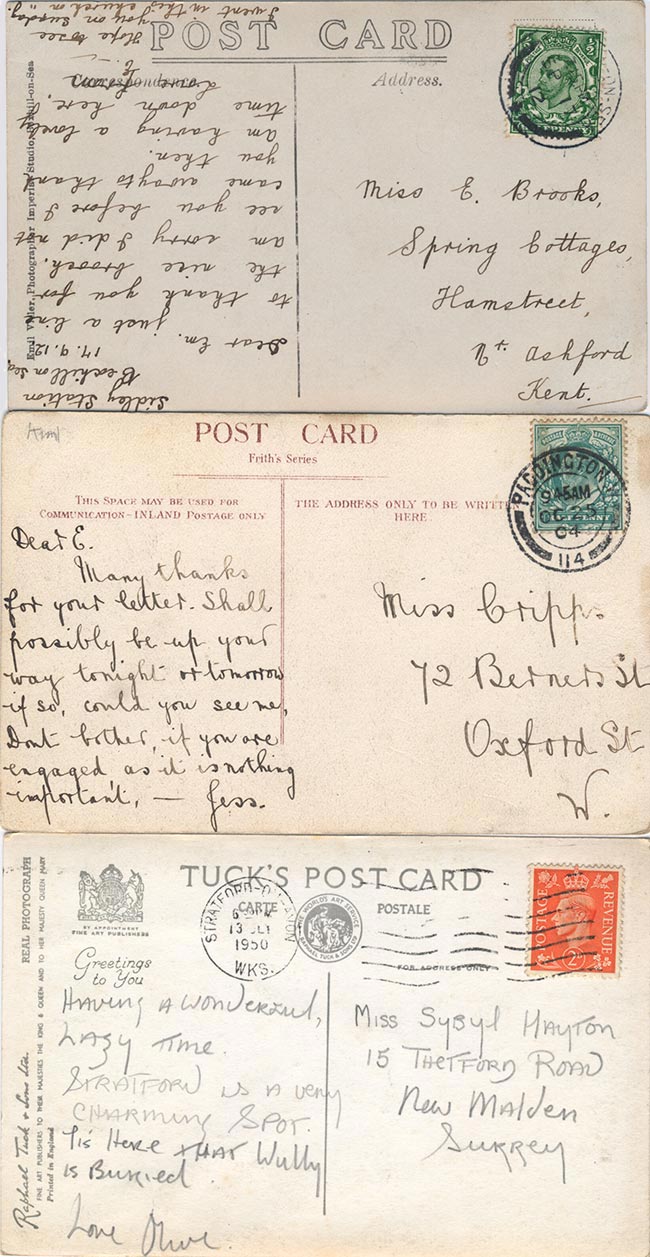 POST CARD
Correspondence.
Address.
Sidley Station
Bexhill on Sea
17.9.12
Dear Em. just a line
to thank you for
the nice brooch.
am sorry I did not
see you before I
came away to thank
you then.
am having a lovely
time down here.
Love
Hope to see
you on Sunday
I went in this church on
Miss E. Brooks,
Spring Cottages,
Hamstreet,
Nr. Ashford
Kent.
Photographer Imperial Studio, Bexhill-on-Sea
POST CARD
Frith's Series
THIS SPACE MAY BE USED FOR
COMMUNICATION-INLAND POSTAGE ONLY
THE ADDRESS ONLY TO BE WRITTEN
HERE.
PADDINGTON
9.45AM
OC 25
04
114
Dear E.
Many thanks
for your letter. Shall
possibly be up your
way tonight or tomorrow
if so, could you see me,
Dont bother, if you are
engaged as it is nothing
important, — Jess.
Miss Cripps
72 Berners St
Oxford St
W.
TUCK'S POST CARD
CARTE POSTALE
FOR ADDRESS ONLY
BY APPOINTMENT
FINE ART PUBLISHERS
STRATFORD-ON-AVON
1950
WKS.
THE WORLD'S ART SERVICE
RAPHAEL TUCK & SONS LTD
POSTAGE REVENUE
2D
Greetings
to You
Having a wonderful,
lazy time.
Stratford is a very
charming spot.
Tis here that Wully
is Buried.
Love Olive.
Miss Sybyl Hayton
15 Thetford Road
New Malden
Surrey
REAL PHOTOGRAPH
Raphael Tuck & Sons Ltd.
FINE ART PUBLISHERS TO THEIR MAJESTIES THE KING & QUEEN AND TO HER MAJESTY QUEEN MARY
Printed in England